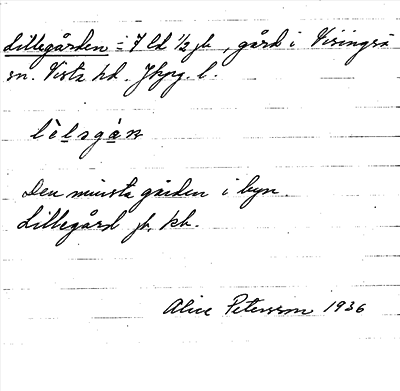 Lillegården = 7 ld ½ jb, gård i Visingsö
sn. Vista hd. Jkpg. l.
Den minsta gården i byn
Lillegård jb, kb.
Alice Petersson 1936